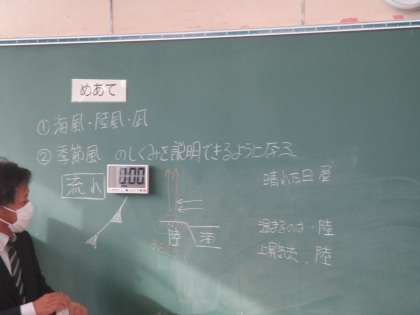 めあて
①海風・陸風・凪
②季節風 のしくみを説明できるようになる
流れ
1:00
晴れた日 昼
陸 海
温まるのは 陸
陸